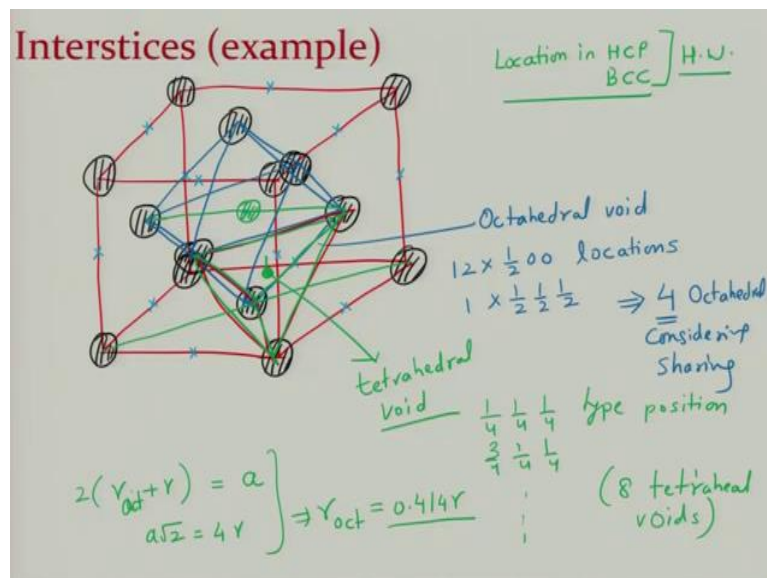 Interstices (example)
Location in HCP
BCC ] H.W.
Octahedral void
12 × 1/2 0 0 locations
1 × 1/2 1/2 1/2 ⇒ 4 Octahedral
Considering
Sharing
tetrahedral
void
1/4 1/4 1/4 type position
3/4 1/4 1/4
(8 tetraheal
voids)
2(r_oct + r) = a
a√2 = 4r
] ⇒ r_oct = 0.414r